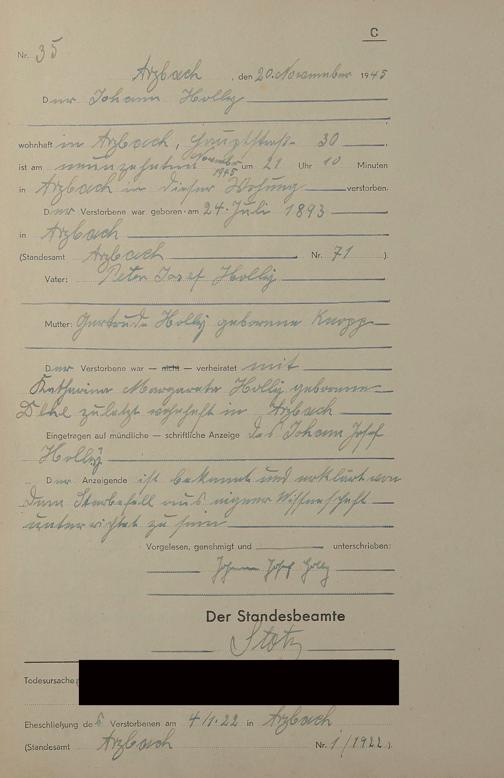 C
Nr. 35
Arzbach, den 20. November 1945
Der Johann Holly
wohnhaft in Arzbach, Hauptstraße 30
ist am neunzehnten November 1945 um 21 Uhr 10 Minuten
in Arzbach in dieser Wohung verstorben.
Der Verstorbene war geboren am 24. Juli 1893
in Arzbach
(Standesamt Arzbach Nr. 71 ).
Vater: Peter Josef Holly
Mutter: Gertrude Holly geborene Knopp
Der Verstorbene war — nicht — verheiratet mit
Katharina Margareta Holly geborene
zuletzt wohnhaft in Arzbach
Eingetragen auf mündliche — schriftliche Anzeige des Johann Josef
Holly
Der Anzeigende ist bekannt und erklärt von
dem Sterbefall aus eigner Wissenschaft
unterrichtet zu sein
Vorgelesen, genehmigt und unterschrieben:
Johann Josef Holly
Der Standesbeamte
Stotz
Todesursache
Eheschließung des Verstorbenen am 4/1.22 in Arzbach
(Standesamt Arzbach Nr. 1/1922 ).